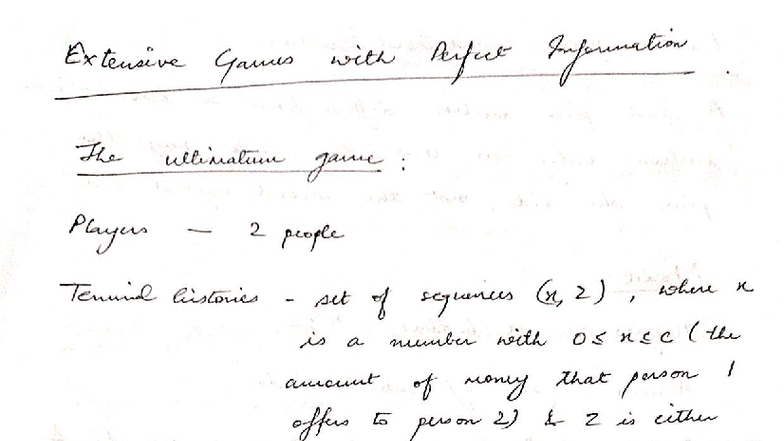 Extensive Games with Perfect Information
The ultimatum game :
Players — 2 people
Terminal histories - set of sequences (x, Z), where x
is a number with 0 ≤ x ≤ c (the
amount of money that person 1
offers to person 2) & Z is either